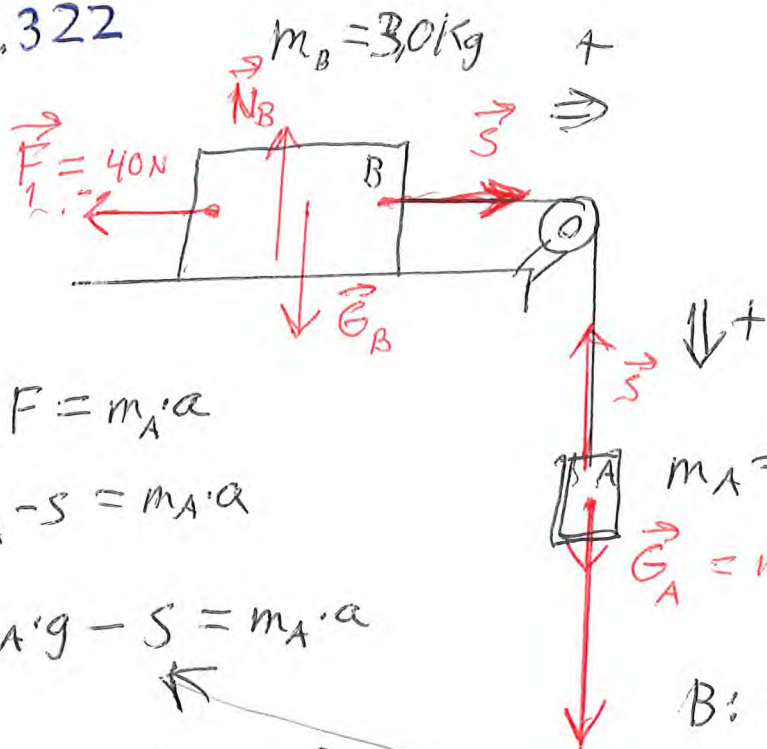 .322
m_B = 3,0 Kg +
N_B
F = 40N
B
S
G_B
+
S
F = m_A·a
-S = m_A·a
A
m_A =
G_A =
A·g - S = m_A·a
B: